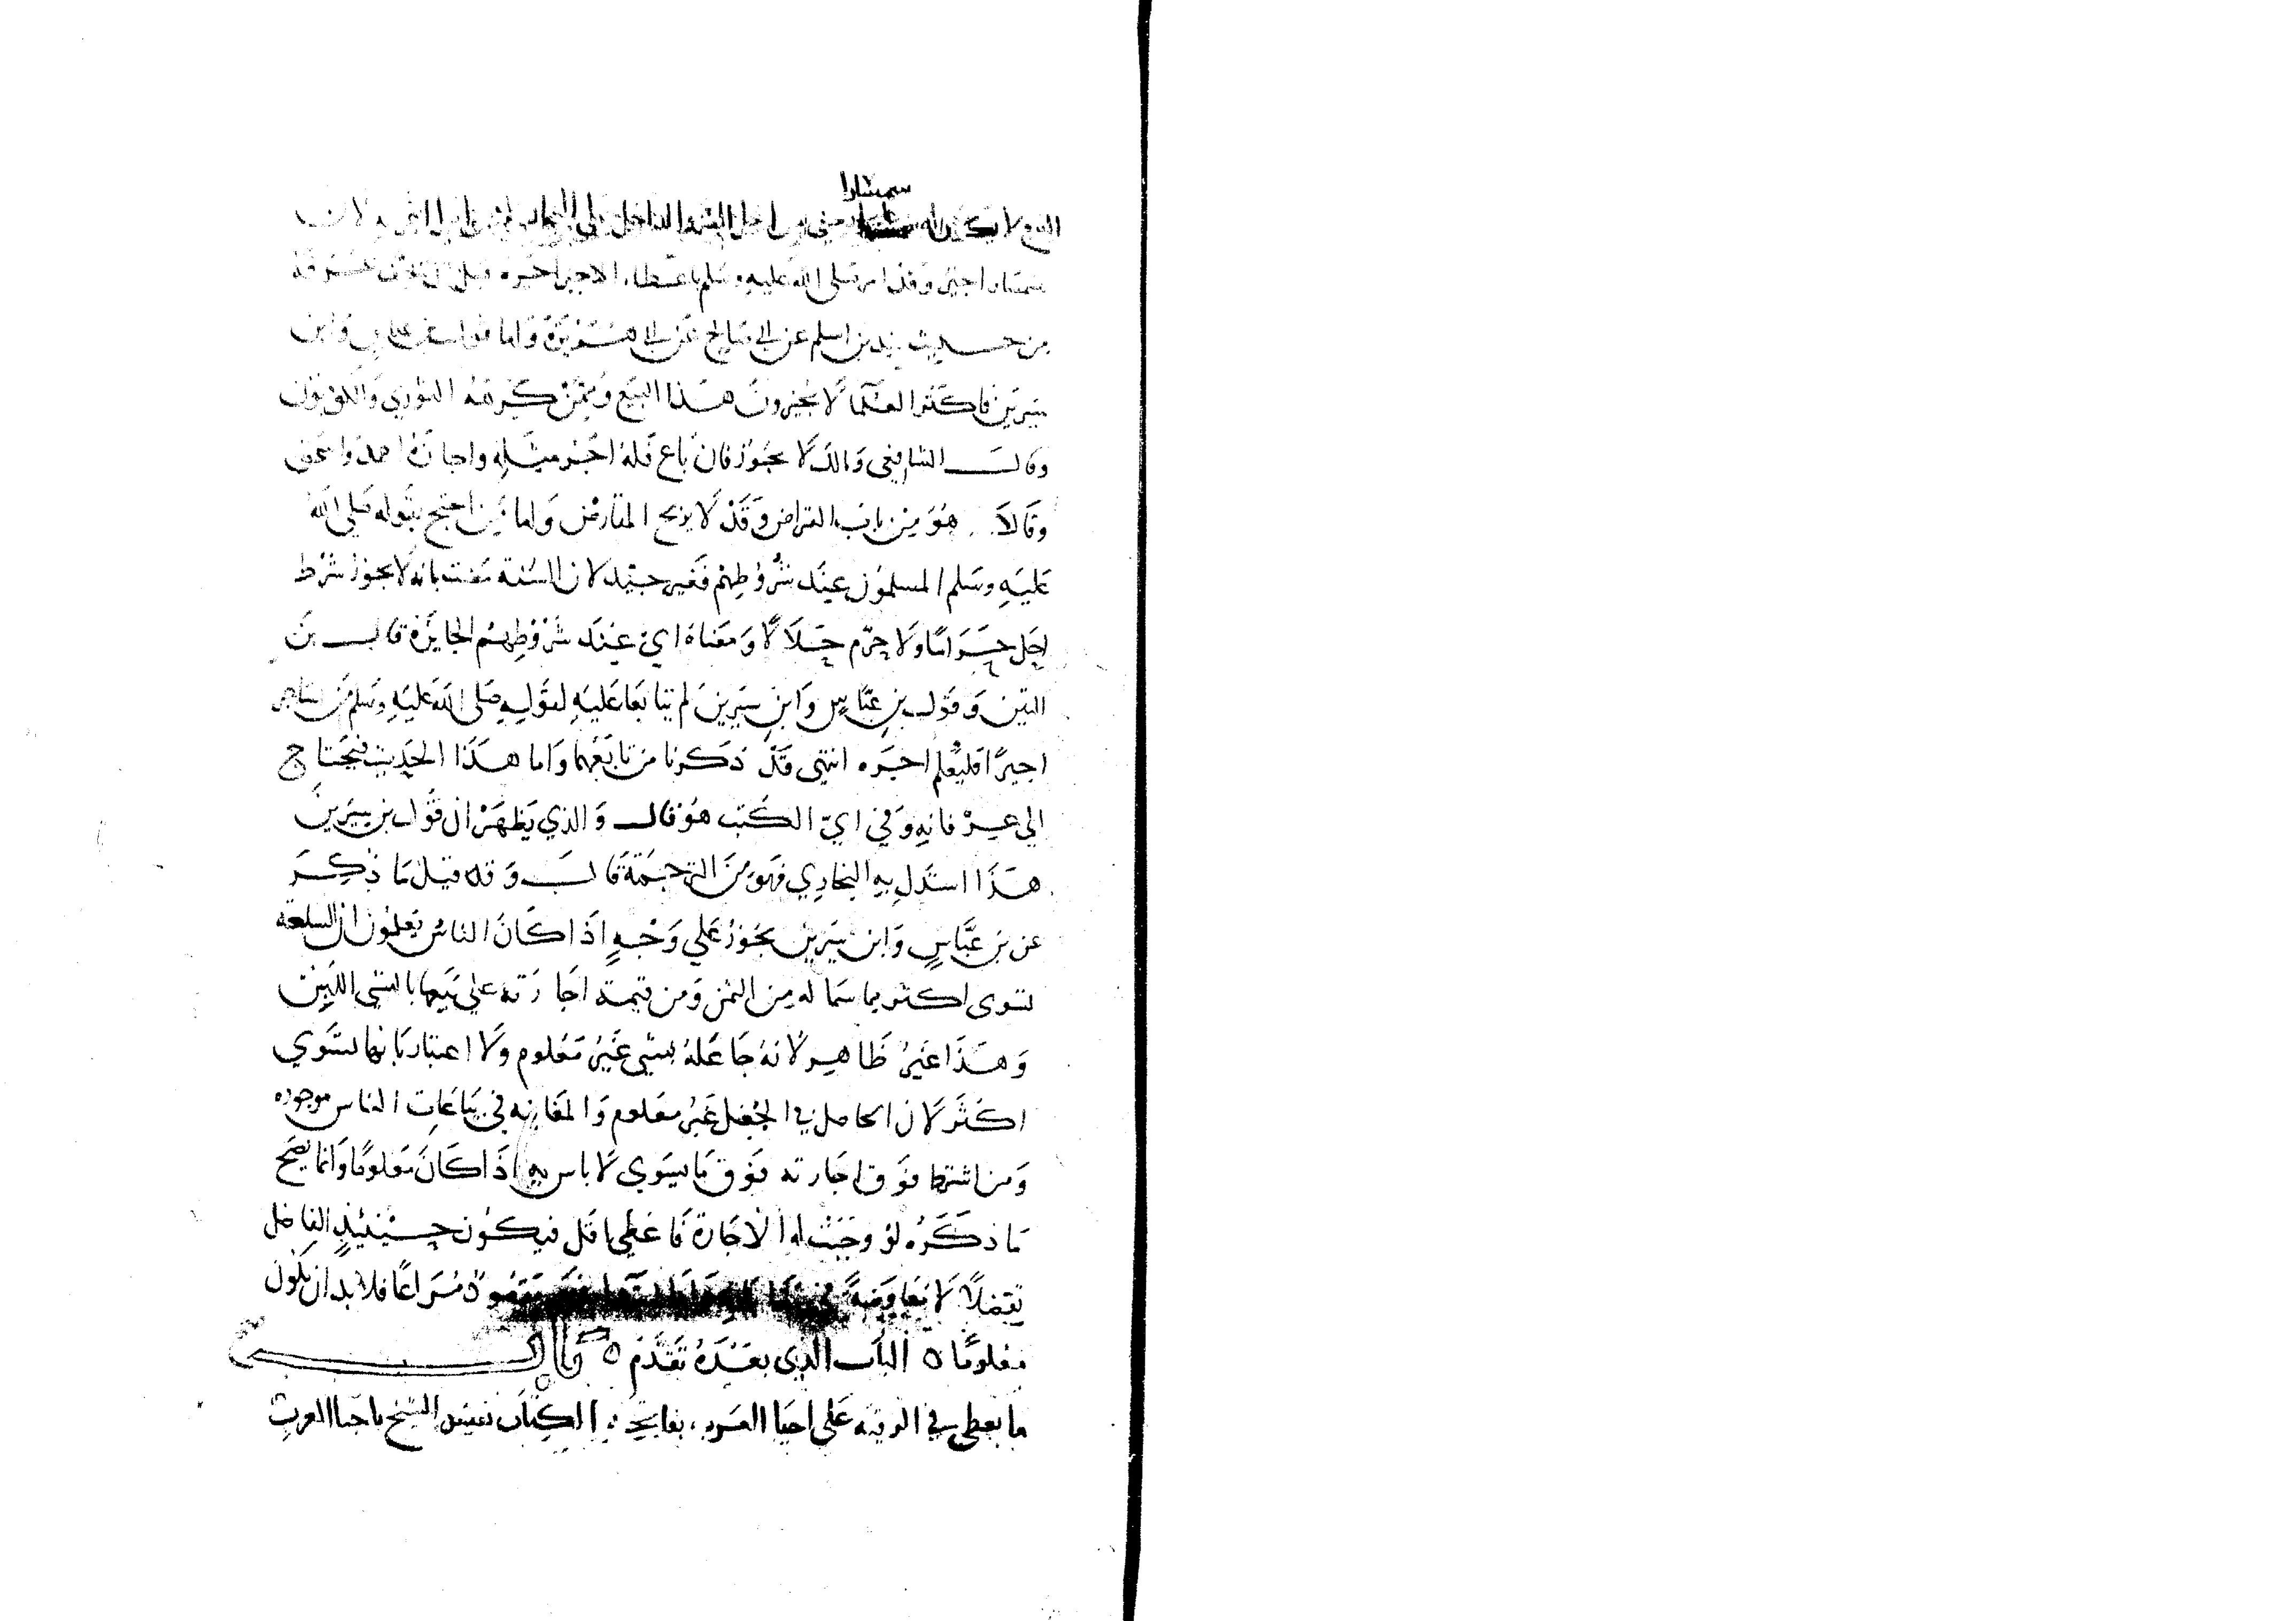 سمسارا
لا يكون له
اجير وقد امر صلى الله عليه وسلم باعطاء الاجير اجره قبل ان يجف عرقه
من حديث زيد بن اسلم عن ابي صالح عن ابي هريرة واما قول بن عباس وابن
سيرين فاكثر العلما لا يجيزون هذا البيع وممن كرهه الثوري والكوفيون
وقال الشافعي ومالك لا يجوز فان باع فله اجر مثله واجازه احمد واسحق
وقالا هو من باب القراض وقد لا يربح المقارض واما من احتج بقوله صلى الله
عليه وسلم المسلمون عند شروطهم فغير جيد لان السنة مضت بانه لا يجوز شرط
احل حراما ولا حرم حلالا ومعناه اي عند شروطهم الجايزة قال بن
التين وقول بن عباس وابن سيرين لم يتابعا عليه لقوله صلى الله عليه وسلم من استاجر
اجيرا فليعلم اجره انتهى وقد ذكرنا من تابعهما واما هذا الحديث فيحتاج
الي عرفانه وفي اي الكتب هو قال والذي يظهر ان قول بن سيرين
هذا استدل به البخاري فهو من الترجمة قال وقد قيل ما ذكر
عن بن عباس وابن سيرين يجوز علي وجه اذا كان الناس يعلمون ان السلعة
تسوى اكثر مما سما له من الثمن ومن قيمة اجارته علي بيعها بالشي البين
وهذا غير ظاهر لانه جاعله بشي غير معلوم ولا اعتبار بانها تسوي
اكثر لان الحاصل في الجعل غير معلوم والمغابنه في بياعات الناس موجوده
ومن اشترط فوق اجارته فوق ما يسوي لا باس به اذا كان معلوما وانما يصح
ما ذكره لو وجبت له الاجارة فاعطي اقل فيكون حينئذ الفاضل
تفضلا لا معاوضة مقصود مراعا فلا بد ان يكون
معلوما ه الباب الذي بعده تقدم ه باب
ما يعطى في الرقيه على احيا العرب بفاتحة الكتاب نفيس الشيخ باحيا العرب